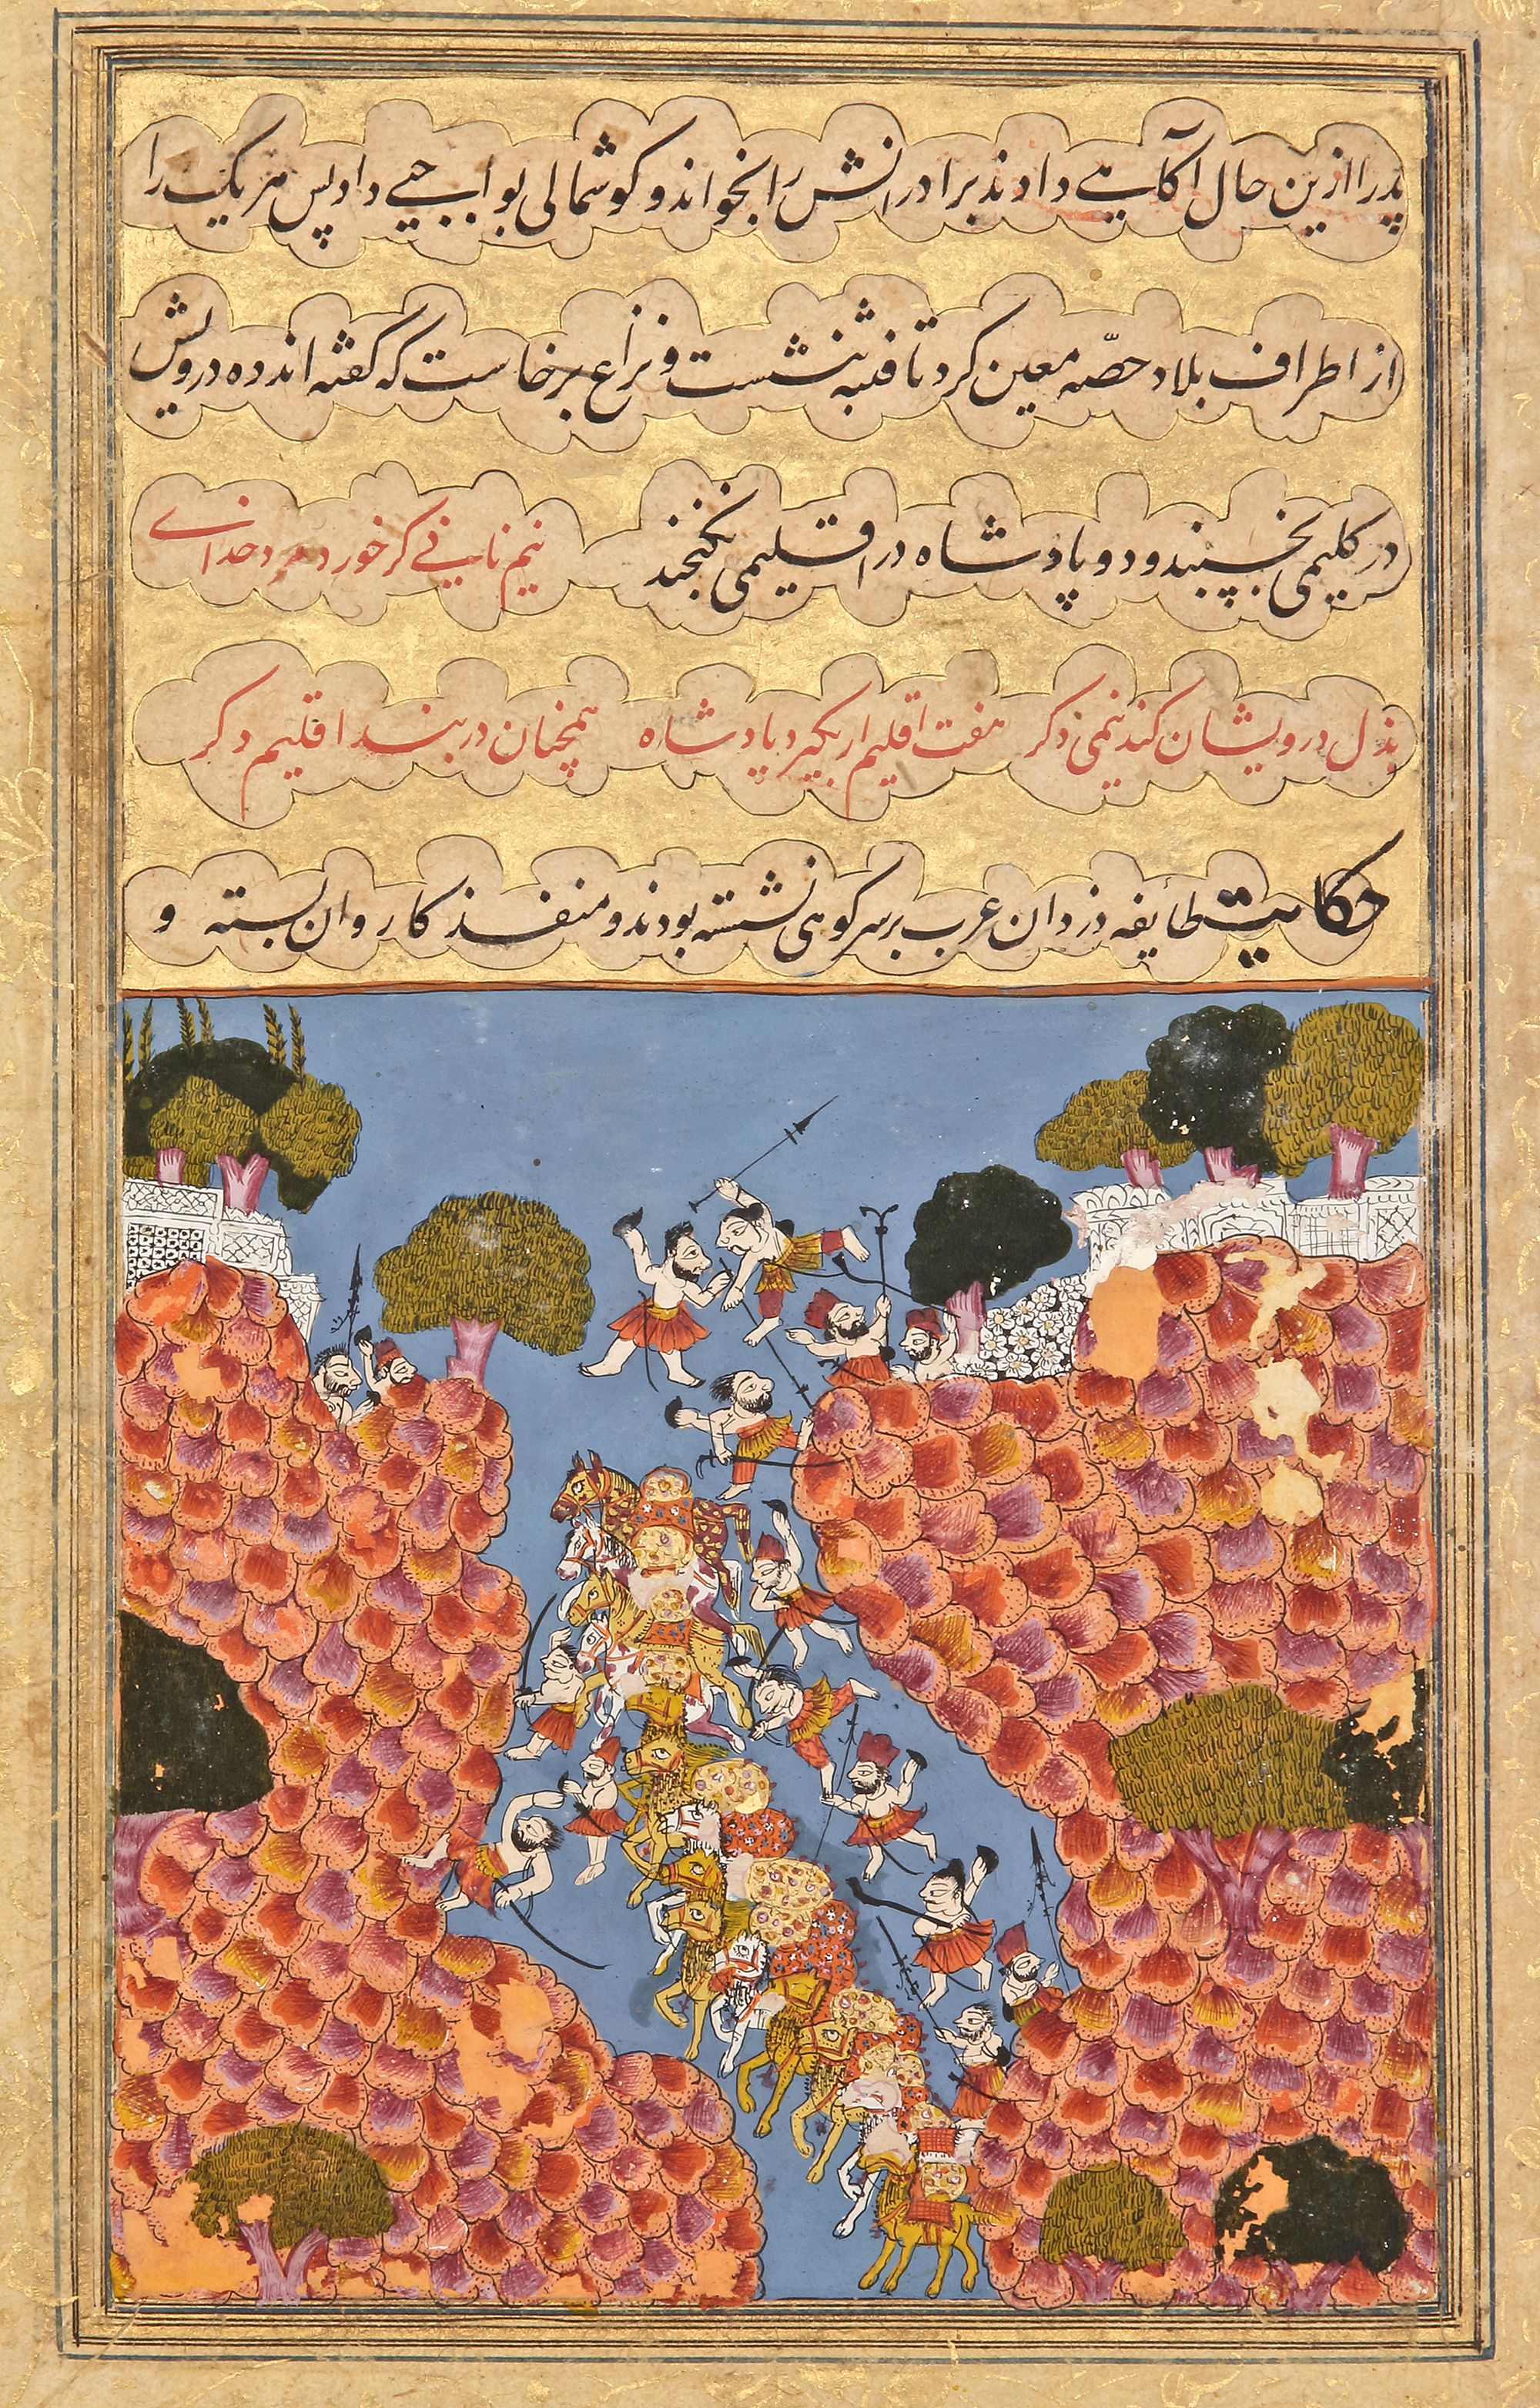 پدر را ازین حال آکاهی دادند برادرانش را بخواند و کوشمالی بواجبی داد پس هر یک را
از اطراف بلاد حصّه معین کرد تا فتنه بنشست و نزاع برخاست که کفته اند ده درویش
در کلیمی بخسپند و دو پادشاه در اقلیمی نکنجند نیم نانی کر خورد مرد خدای
بذل درویشان کند نیمی دکر هفت اقلیم ار بکیرد پادشاه همچنان در بند اقلیم دکر
حکایت طایفه دزدان عرب بر سر کوهی نشسته بودند و منفذ کاروان بسته و